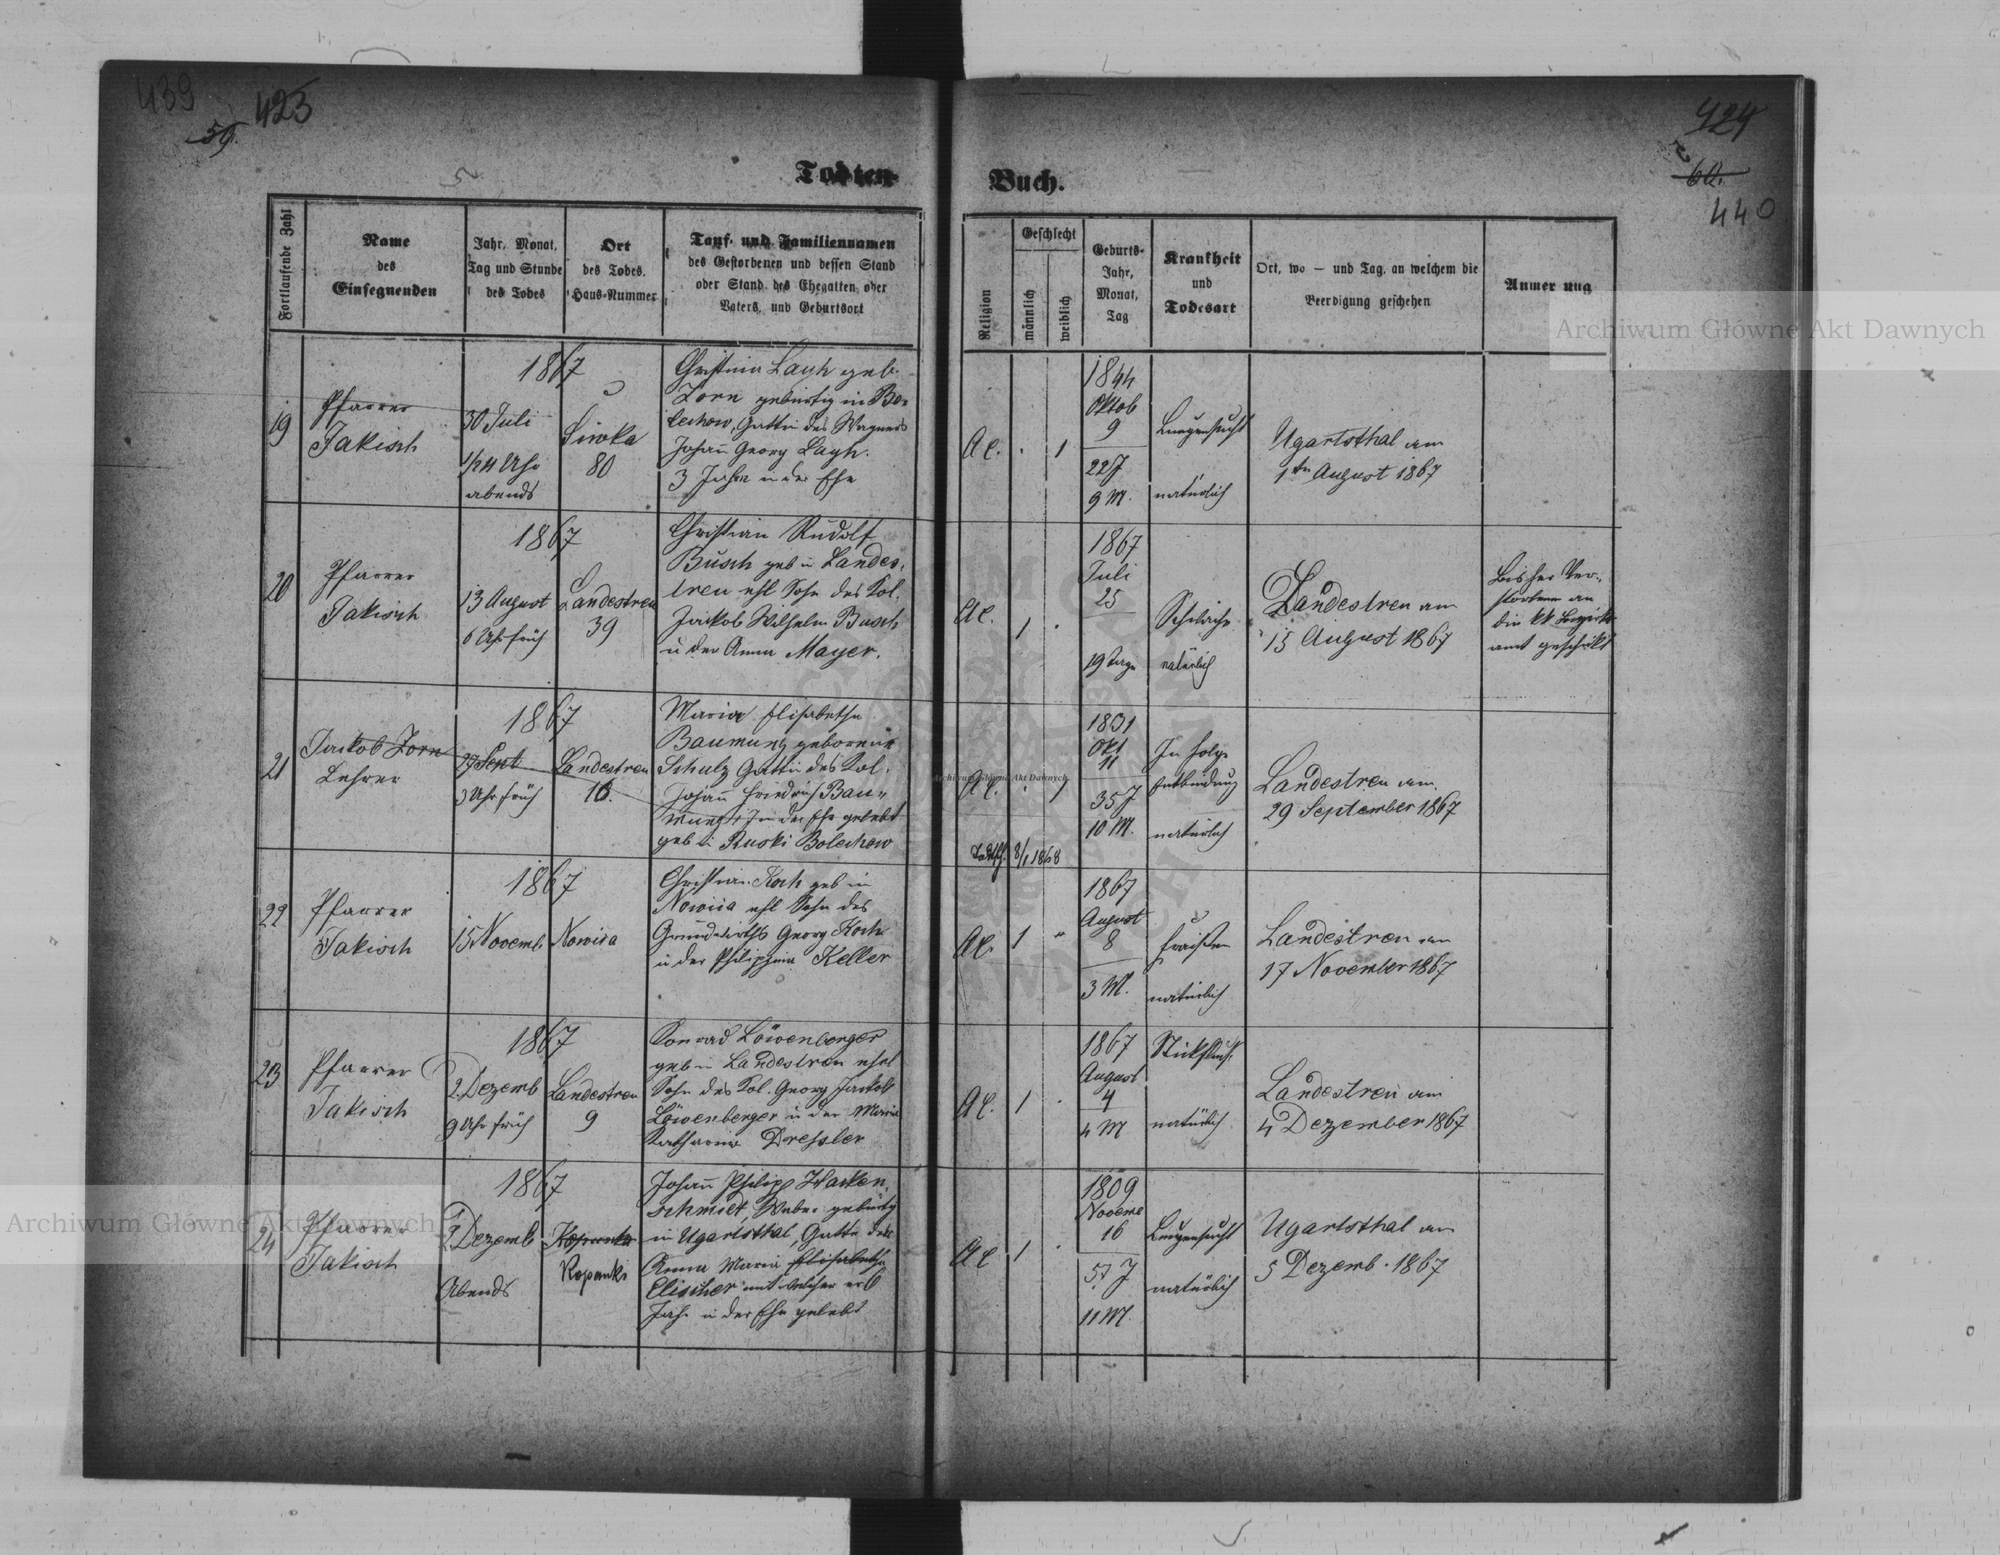 439
423
59.
424
60.
440
Todten
Buch.
Fortlaufende Zahl
Name
des
Einsegnenden
Jahr, Monat,
Tag und Stunde
des Todes
Ort
des Todes,
Haus-Nummer
Tauf- und Familiennamen
des Gestorbenen und dessen Stand
oder Stand des Ehegatten oder
Vaters, und Geburtsort
Religion
Geschlecht
männlich
weiblich
Geburts-
Jahr,
Monat,
Tag
Krankheit
und
Todesart
Ort, wo – und Tag, an welchem die
Beerdigung geschehen
Anmer ung
19
Pfarrer
Jakisch
1867
30 Juli
1/2 4 Uhr
abends
Siwka
80
Christina Layh geb.
Zorn gebürtig in Bo-
lechow, Gattin des Wagners
Johann Georg Layh.
3 Jahre in der Ehe
A C.
1
1844
Oktob
9
22 J
9 M.
Lungensucht
natürlich
Ugartsthal am
1ten August 1867
20
Pfarrer
Jakisch
1867
13 August
6 Uhr früh
Landestreu
39
Christian Rudolf
Busch geb in Landes-
treu ehl Sohn des Kol.
Jakob Wilhelm Busch
u der Anna Mayer.
A C.
1
1867
Juli
25
19 Tage
Schwäche
natürlich
Landestreu am
15 August 1867
Bisher Ver-
storbene an
die kk Bezirks
amt geschikt
21
Jakob Zorn
Lehrer
1867
27 Sept
3 Uhr früh
Landestreu
16.
Maria Elisabetha
Baumung geborene
Schulz Gattin des Kol.
Johann Friedrich Bau-
mung, in der Ehe gelebt
geb in Ruski Bolechow
A C.
1
8/1 1868
1831
Okt
11
35 J
10 M.
In Folge
Entbindung
natürlich
Landestreu am
29 September 1867
22
Pfarrer
Jakisch
1867
15 Novemb
Nowica
Christian Koch geb in
Nowica ehl Sohn des
Grundwirths Georg Koch
u der Philippina Keller
A C.
1
1867
August
8
3 M.
Fraisen
natürlich
Landestreu am
17 November 1867
23
Pfarrer
Jakisch
1867
2. Dezemb
9 Uhr früh
Landestreu
9
Konrad Löwenberger
geb in Landestreu ehel
Sohn des Kol. Georg Jakob
Löwenberger u der Maria
Katharina Dressler
A C.
1
1867
August
4
4 M
Stickfluß
natürlich
Landestreu am
4 Dezember 1867
24
Pfarrer
Jakisch
1867
3 Dezemb
Abends
Kopanka
Kopanki
Johann Philipp Hacken-
schmidt, Weber gebürtig
in Ugartsthal, Gatte der
Anna Maria Elisabetha
Elischer mit welcher er
Jahr in der Ehe gelebt
A C
1
1809
Novemb
16
57 J
11 M.
Lungensucht
natürlich
Ugartsthal am
5 Dezemb. 1867
Archiwum Główne Akt Dawnych
Archiwum Główne Akt Dawnych
Archiwum Główne Akt Dawnych